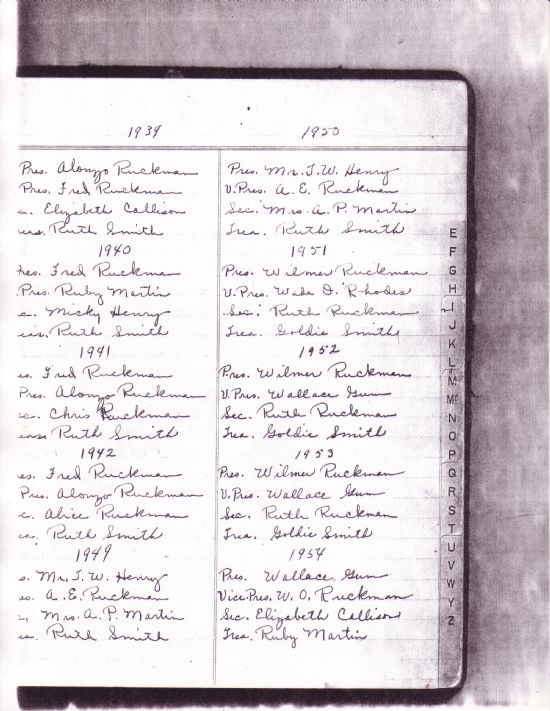 1939
Pres. Alonzo Ruckman
Pres. Fred Ruckman
c. Elizabeth Callison
eas. Ruth Smith
1940
res. Fred Ruckman
Pres. Ruby Martin
c. Micky Henry
eas. Ruth Smith
1941
es. Fred Ruckman
Pres. Alonzo Ruckman
ec. Chris Ruckman
eas. Ruth Smith
1942
es. Fred Ruckman
Pres. Alonzo Ruckman
c. Alice Ruckman
eas. Ruth Smith
1949
s. Mr. J. W. Henry
es. A. E. Ruckman
c. Mrs. A. P. Martin
ea. Ruth Smith
1950
Pres. Mr. J. W. Henry
V. Pres. A. E. Ruckman
Sec. Mrs. A. P. Martin
Trea. Ruth Smith
1951
Pres. Wilmer Ruckman
V. Pres. Wade D. Rhodes
Sec. Ruth Ruckman
Trea. Goldie Smith
1952
Pres. Wilmer Ruckman
V. Pres. Wallace Gum
Sec. Ruth Ruckman
Trea. Goldie Smith
1953
Pres. Wilmer Ruckman
V. Pres. Wallace Gum
Sec. Ruth Ruckman
Trea. Goldie Smith
1954
Pres. Wallace Gum
Vice Pres. W. O. Ruckman
Sec. Elizabeth Callison
Trea. Ruby Martin
E
F
G
H
I
J
K
L
M
Mc
N
O
P
Q
R
S
T
U
V
W
Y
Z